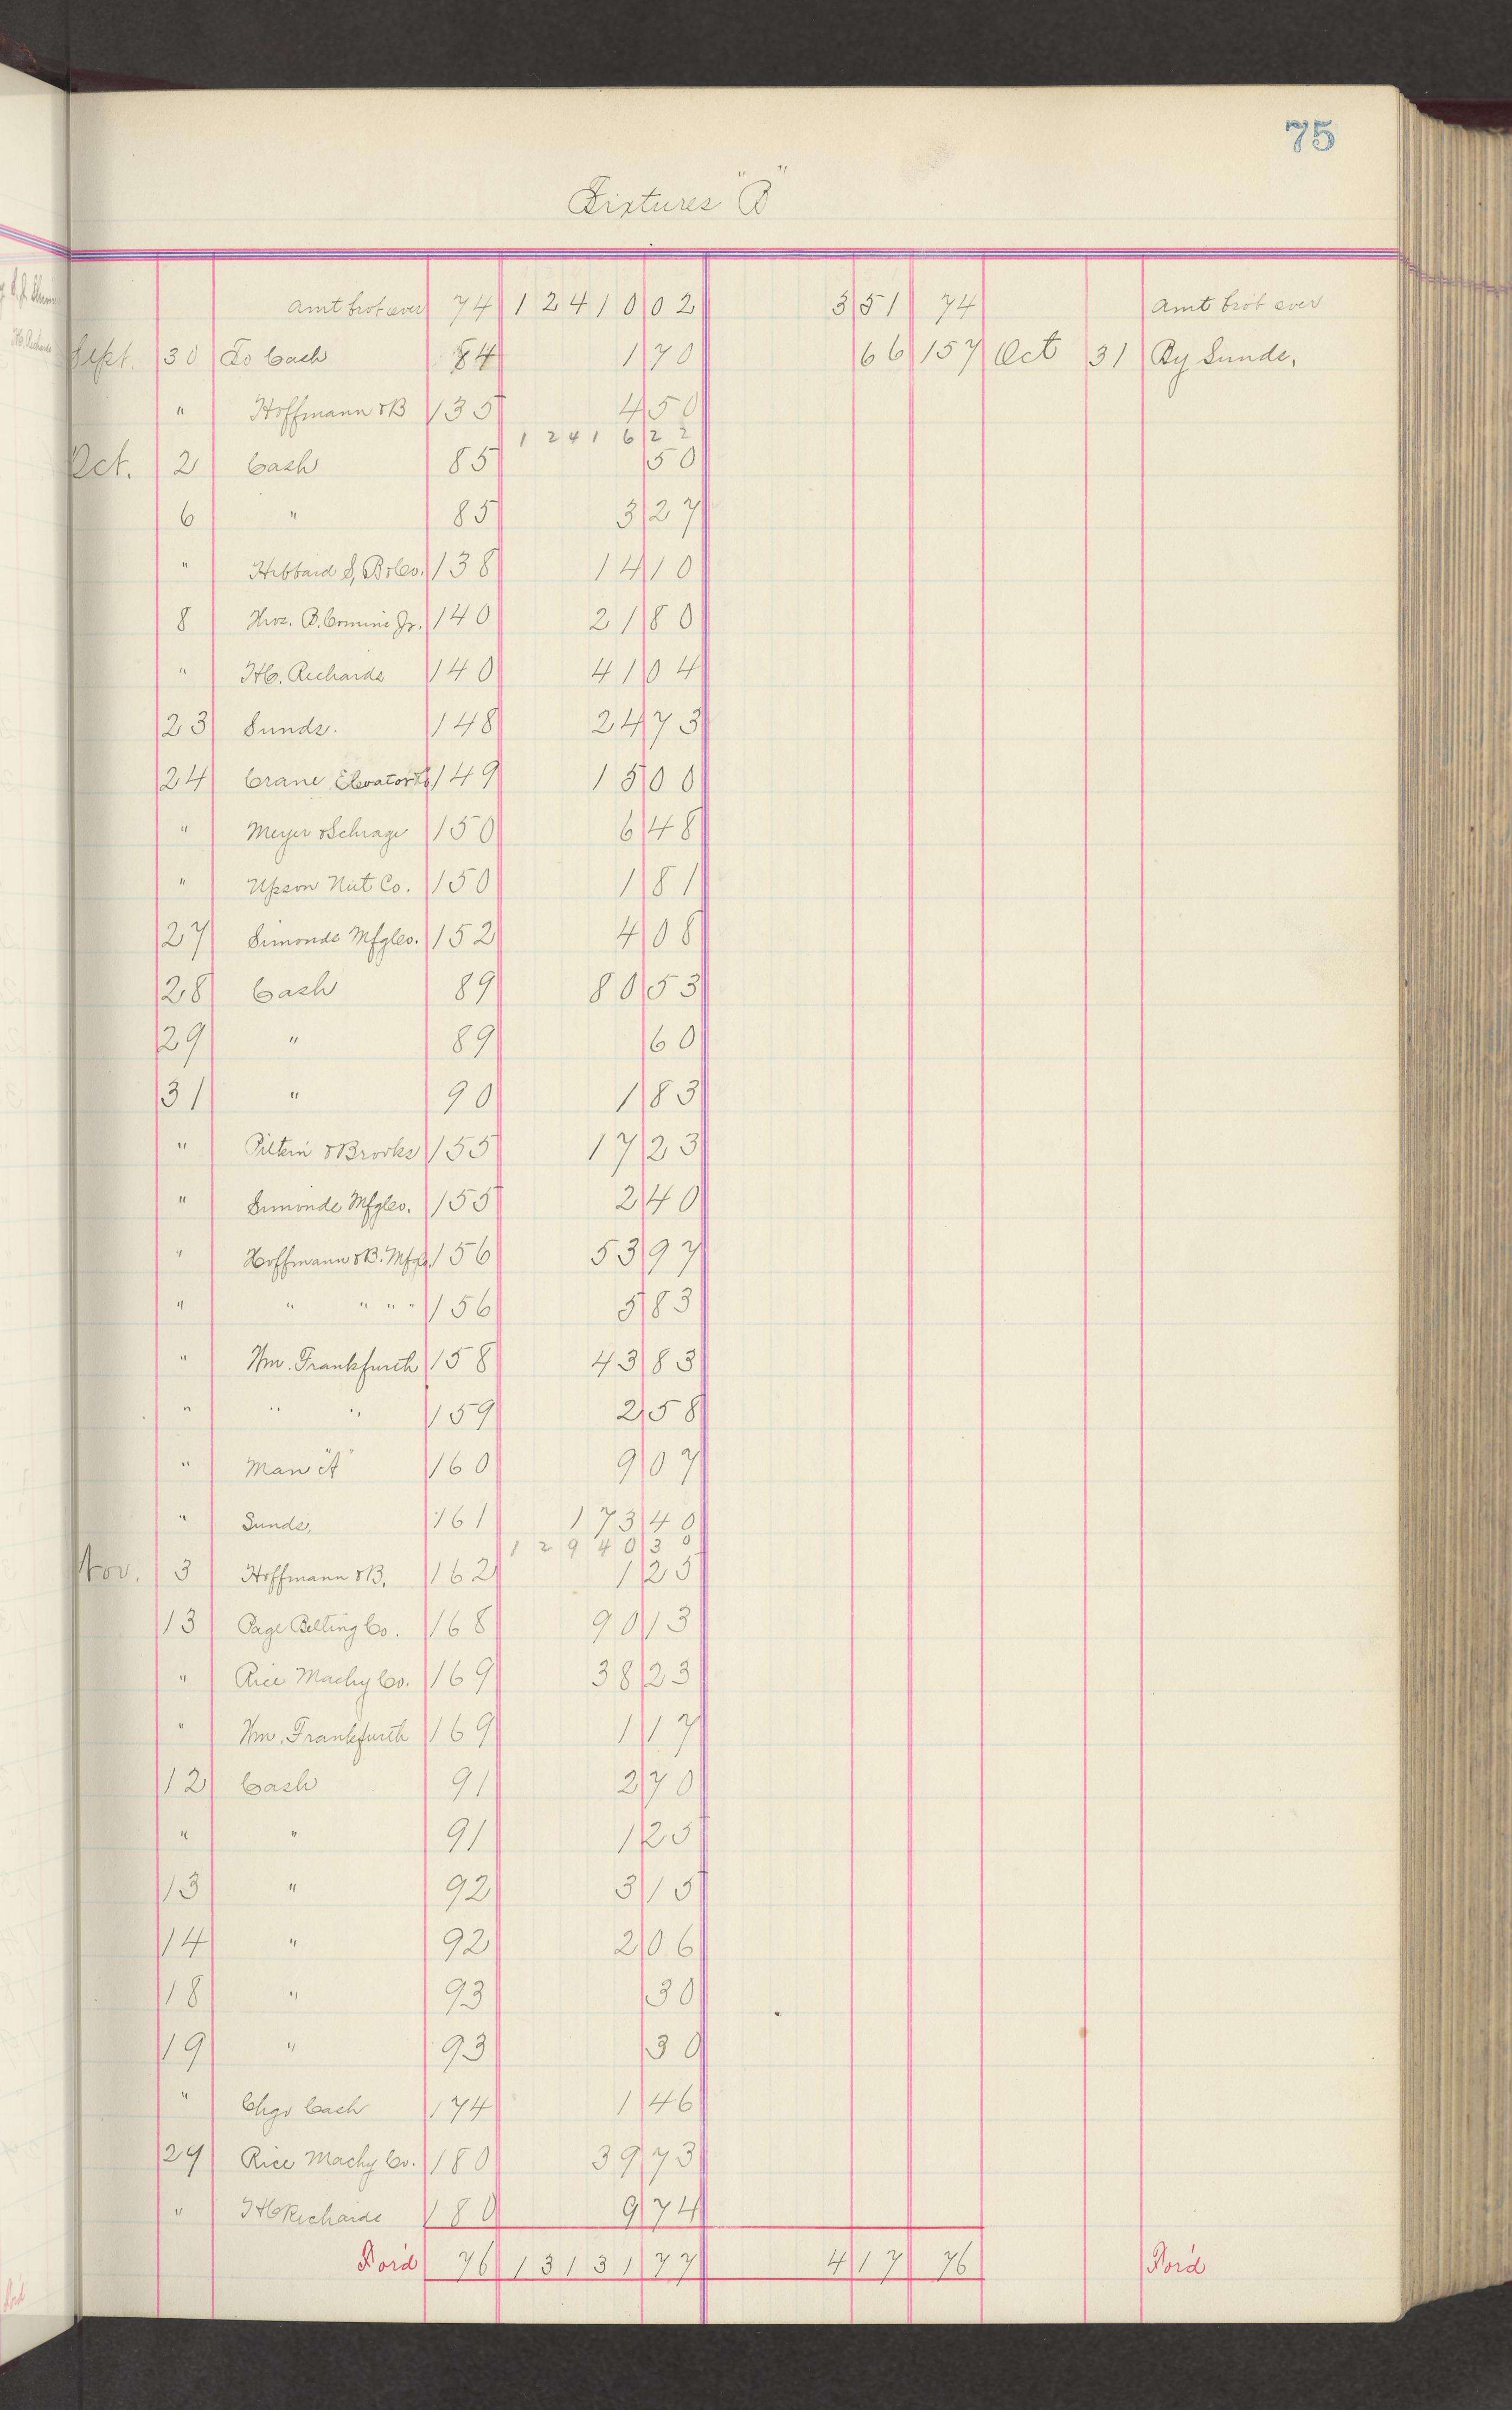 75
Fixtures "B"
Amt brot over 74 12410 02 3 51 74 Amt brot over
Sept. 30 To Cash 84 1 70 66 157 Oct 31 By Sunds.
" Hoffmann & B 135 4 50
12416 22
Oct. 2 Cash 85 50
6 " 85 3 27
" Hibbard S, B & Co. 138 14 10
8 Thos. B. Jr. 140 21 80
" H C. Richards 140 41 04
23 Sunds. 148 24 73
24 Crane Elevator Co 149 15 00
" Meyer & Schrage 150 6 48
" Upson Nut Co. 150 1 81
27 Simonds Mfg Co. 152 4 08
28 Cash 89 80 53
29 " 89 60
31 " 90 1 83
" Pitkin & Brooks 155 17 23
" Simonds Mfg Co. 155 2 40
" Hoffmann & B. Mfg Co. 156 53 97
" " " " " 156 5 83
" Wm. Frankfurth 158 43 83
" " " 159 2 58
" Man "A" 160 9 07
" Sunds, 161 173 40
12940 30
Nov. 3 Hoffmann & B, 162 1 25
13 Page Belting Co. 168 90 13
" Rice Machy Co. 169 38 23
" Wm. Frankfurth 169 1 17
12 Cash 91 2 70
" " 91 1 25
13 " 92 3 15
14 " 92 2 06
18 " 93 30
19 " 93 30
" Chgo Cash 174 1 46
29 Rice Machy Co. 180 39 73
" H C Richards 180 9 74
For'd 76 13131 77 4 17 76 For'd